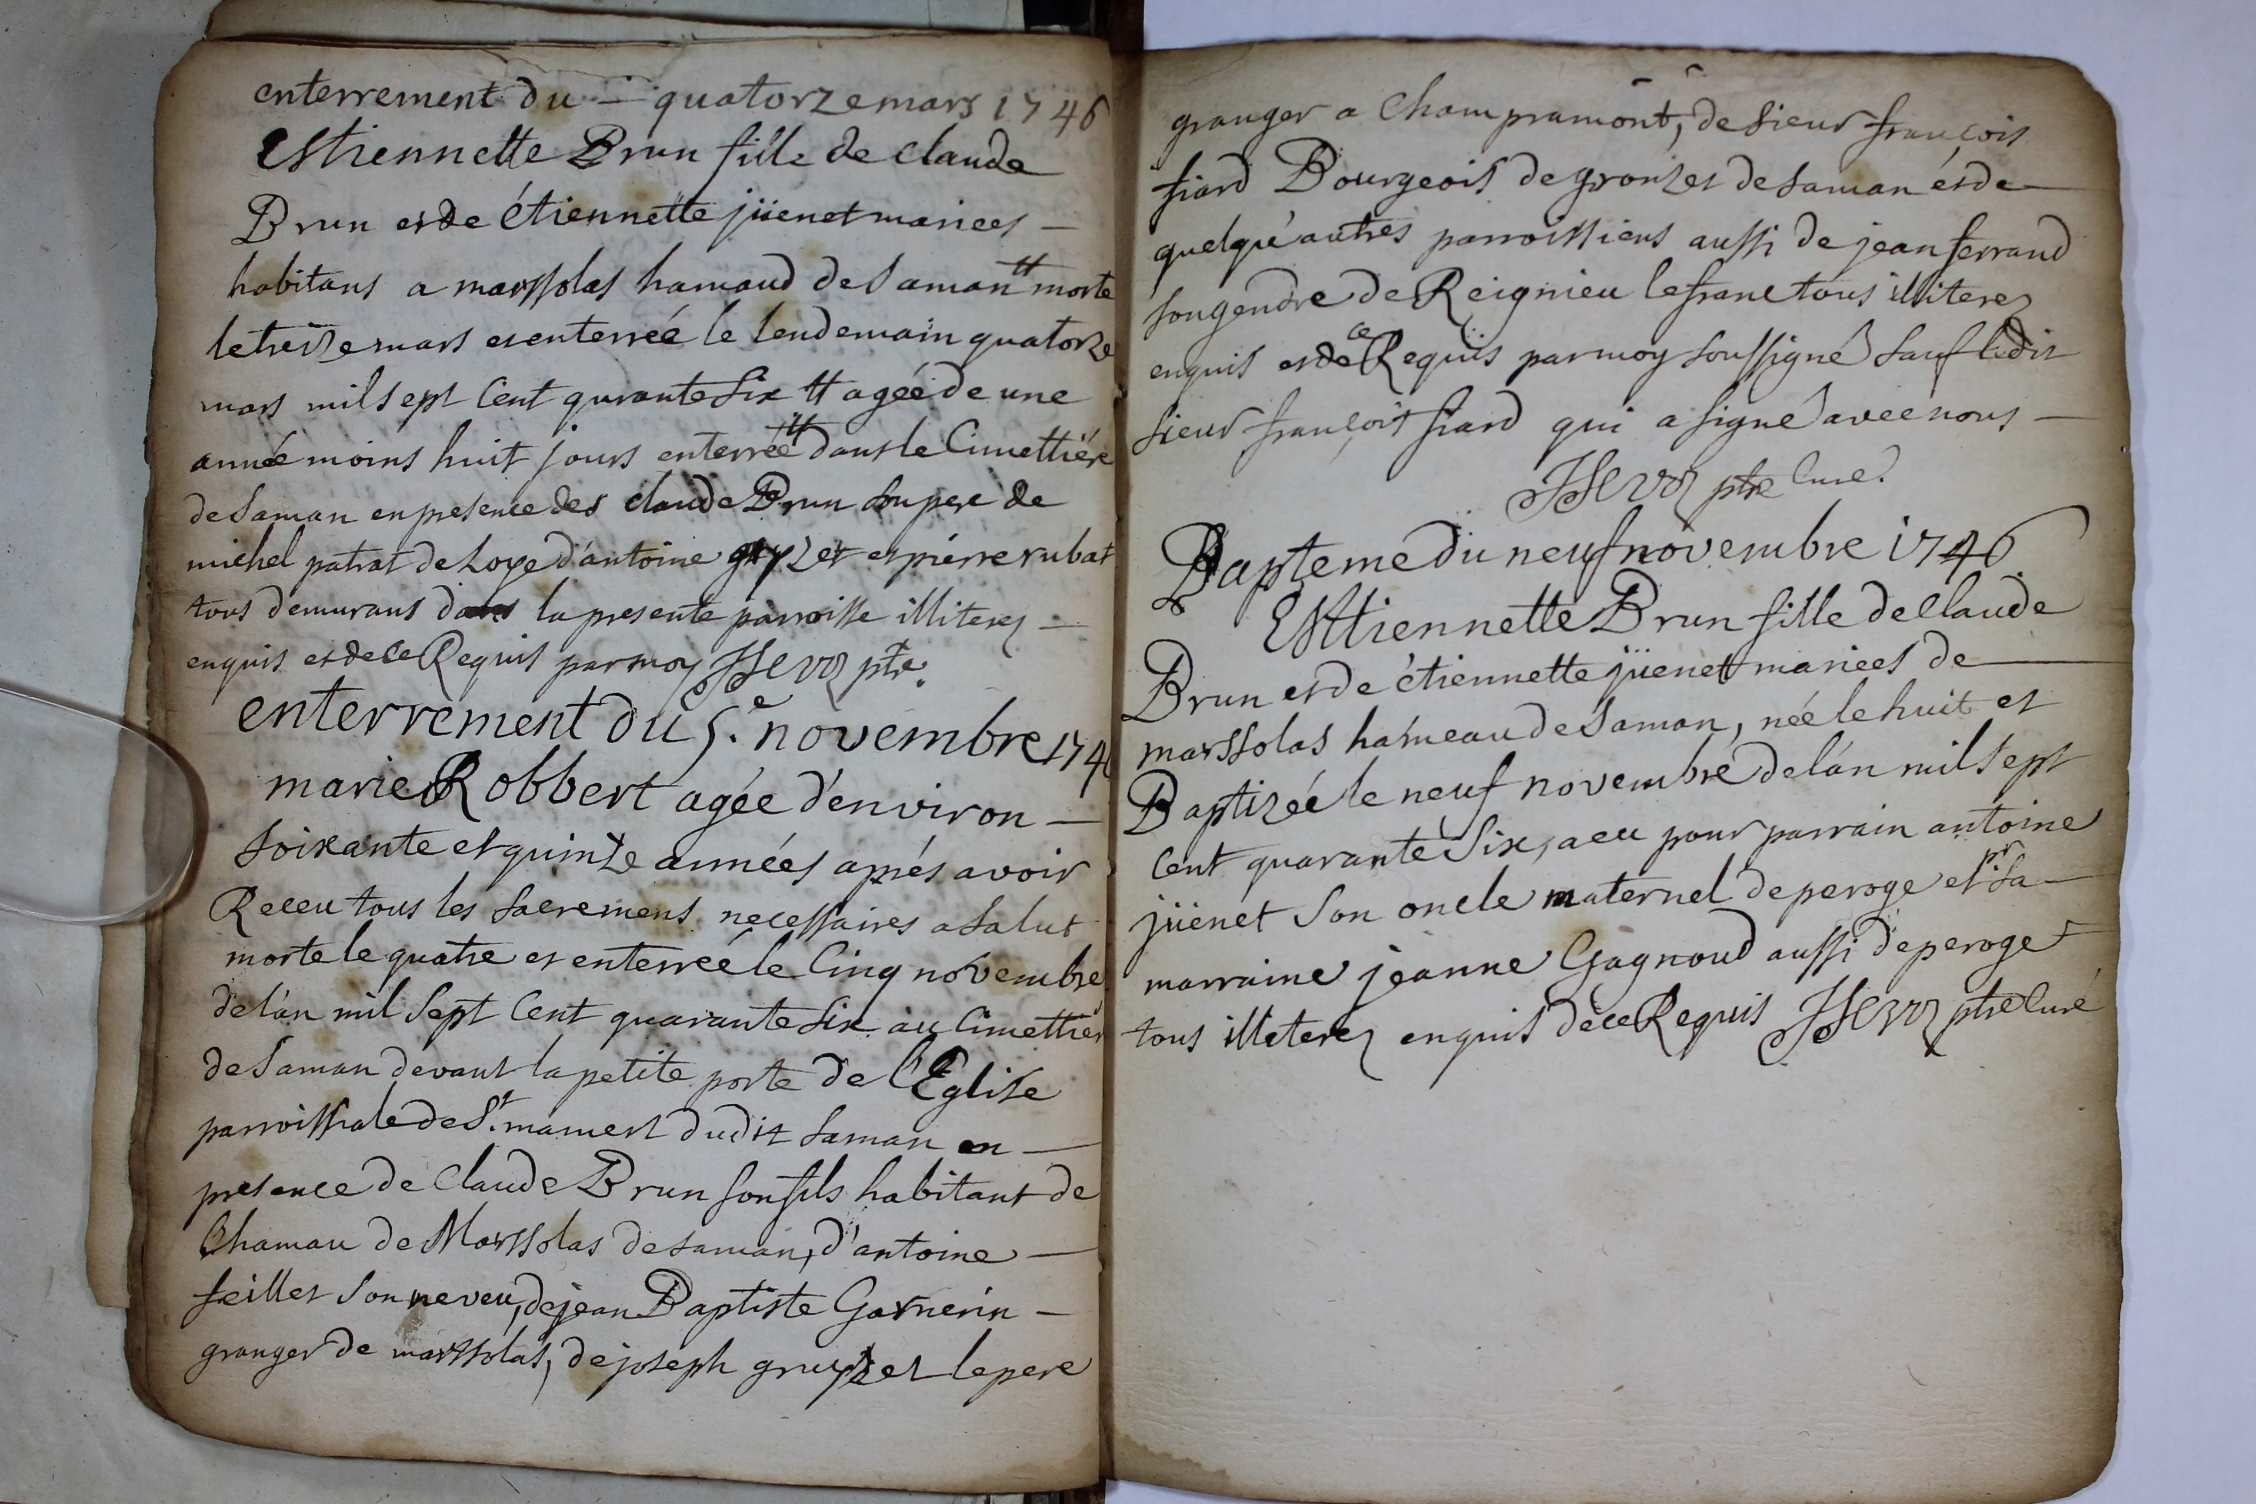 enterrement du - quatorze mars 1746
Estiennette Brun fille de claude
Brun et de étiennette jüenet mariees -
habitans a marssolas hamaud de Saman morte
le treize mars et enterreé le lendemain quatorze
mars mil sept Cent qurante Six agée de une
année moins huit jours enterreé dans le Cimettiére
de Saman en presence des claude Brun son pere de
michel patrat de Loye d'antoine et piérre rubat
tous demurans dans la presente parroisse illiterez -
enquis et de ce Requis par moy ptre.
enterrement du 5.e novembre 174
marie Robbert agée d'environ -
soixante et quinze années aprés avoir
Receu tous les sacremens necessaires a salut
morte le quatre et enterreé le Cinq novembre
de l'an mil Sept Cent quarante Six au Cimettiér
de Saman devant la petite porte de l'Eglise
parroissiale de St. mamert dudit Saman en -
presence de Claude Brun son fils habitant de
l'hamau de Marssolas de saman, d'antoine -
feillet Son neveu, de jean Baptiste Garnerin -
granger de marssolas, de joseph gruyzet le pere
granger a Champramont, de Sieur françois
fiard Bourgeois de de Saman ét de -
quelqué autres parroissiens aussi de jean ferrand
son gendre de Reignieu le franc tous illiterez
enquis et de ce Requis par moy soussigné Sauf ledit
Sieur françois fiard qui a signé avec nous -
ptre Curé.
Bapteme du neuf novembre 1746
Esttiennette Brun fille de Claude
Brun et de étiennette jüenet mariees de -
marssolas hameau de Saman, née le huit et
Baptizée le neuf novembre de l'an mil sept
Cent quarante Six, a eu pour parrain antoine
jüenet Son oncle maternel de peroge et pr sa -
marraine jeanne Gagnoud aussi de peroge
tous illeterez enquis de ce Requis ptre Curé